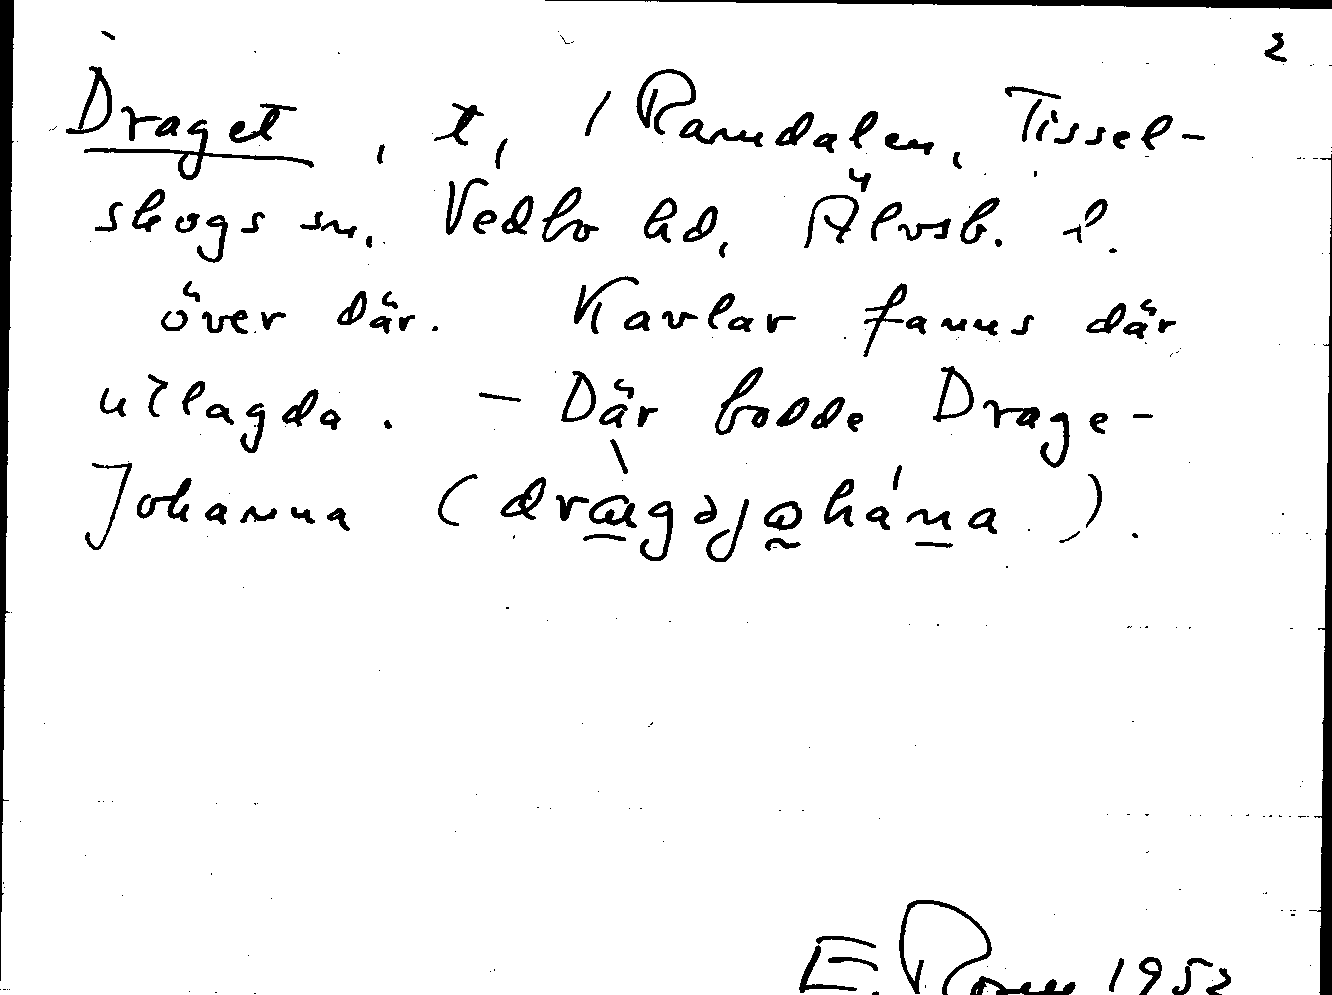 2
Draget, t, / Ramdalen, Tissel-
skogs sn, Vedbo hd, Älvsb. l.
över där. Kavlar fanns där
utlagda. - Där bodde Drage-
Johanna (
).
E. 1952